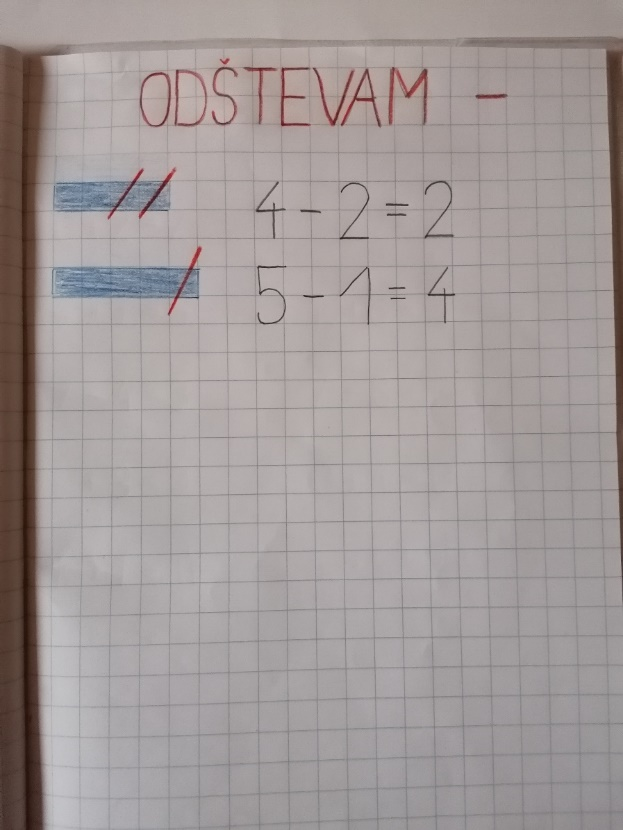 ODŠTEVAM -
4 - 2 = 2
5 - 1 = 4